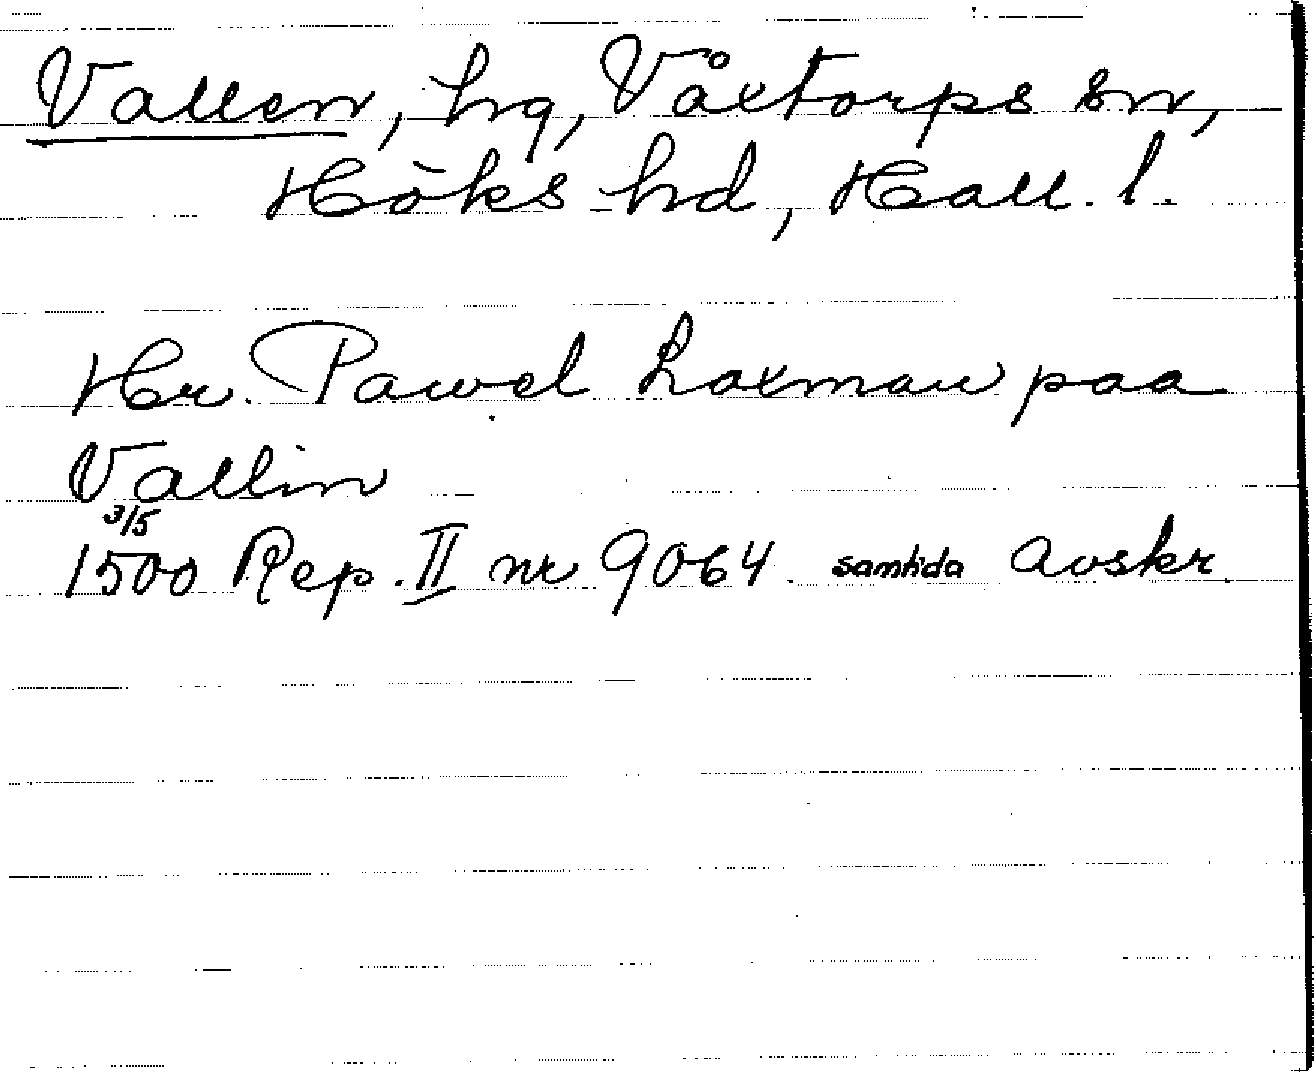 Vallen, hg, Våxtorps sn,
Höks hd, Hall. l.
Hr. Pawel Laxman paa
Vallin
3/5
1500 Rep. II nr 9064. samtida avskr.